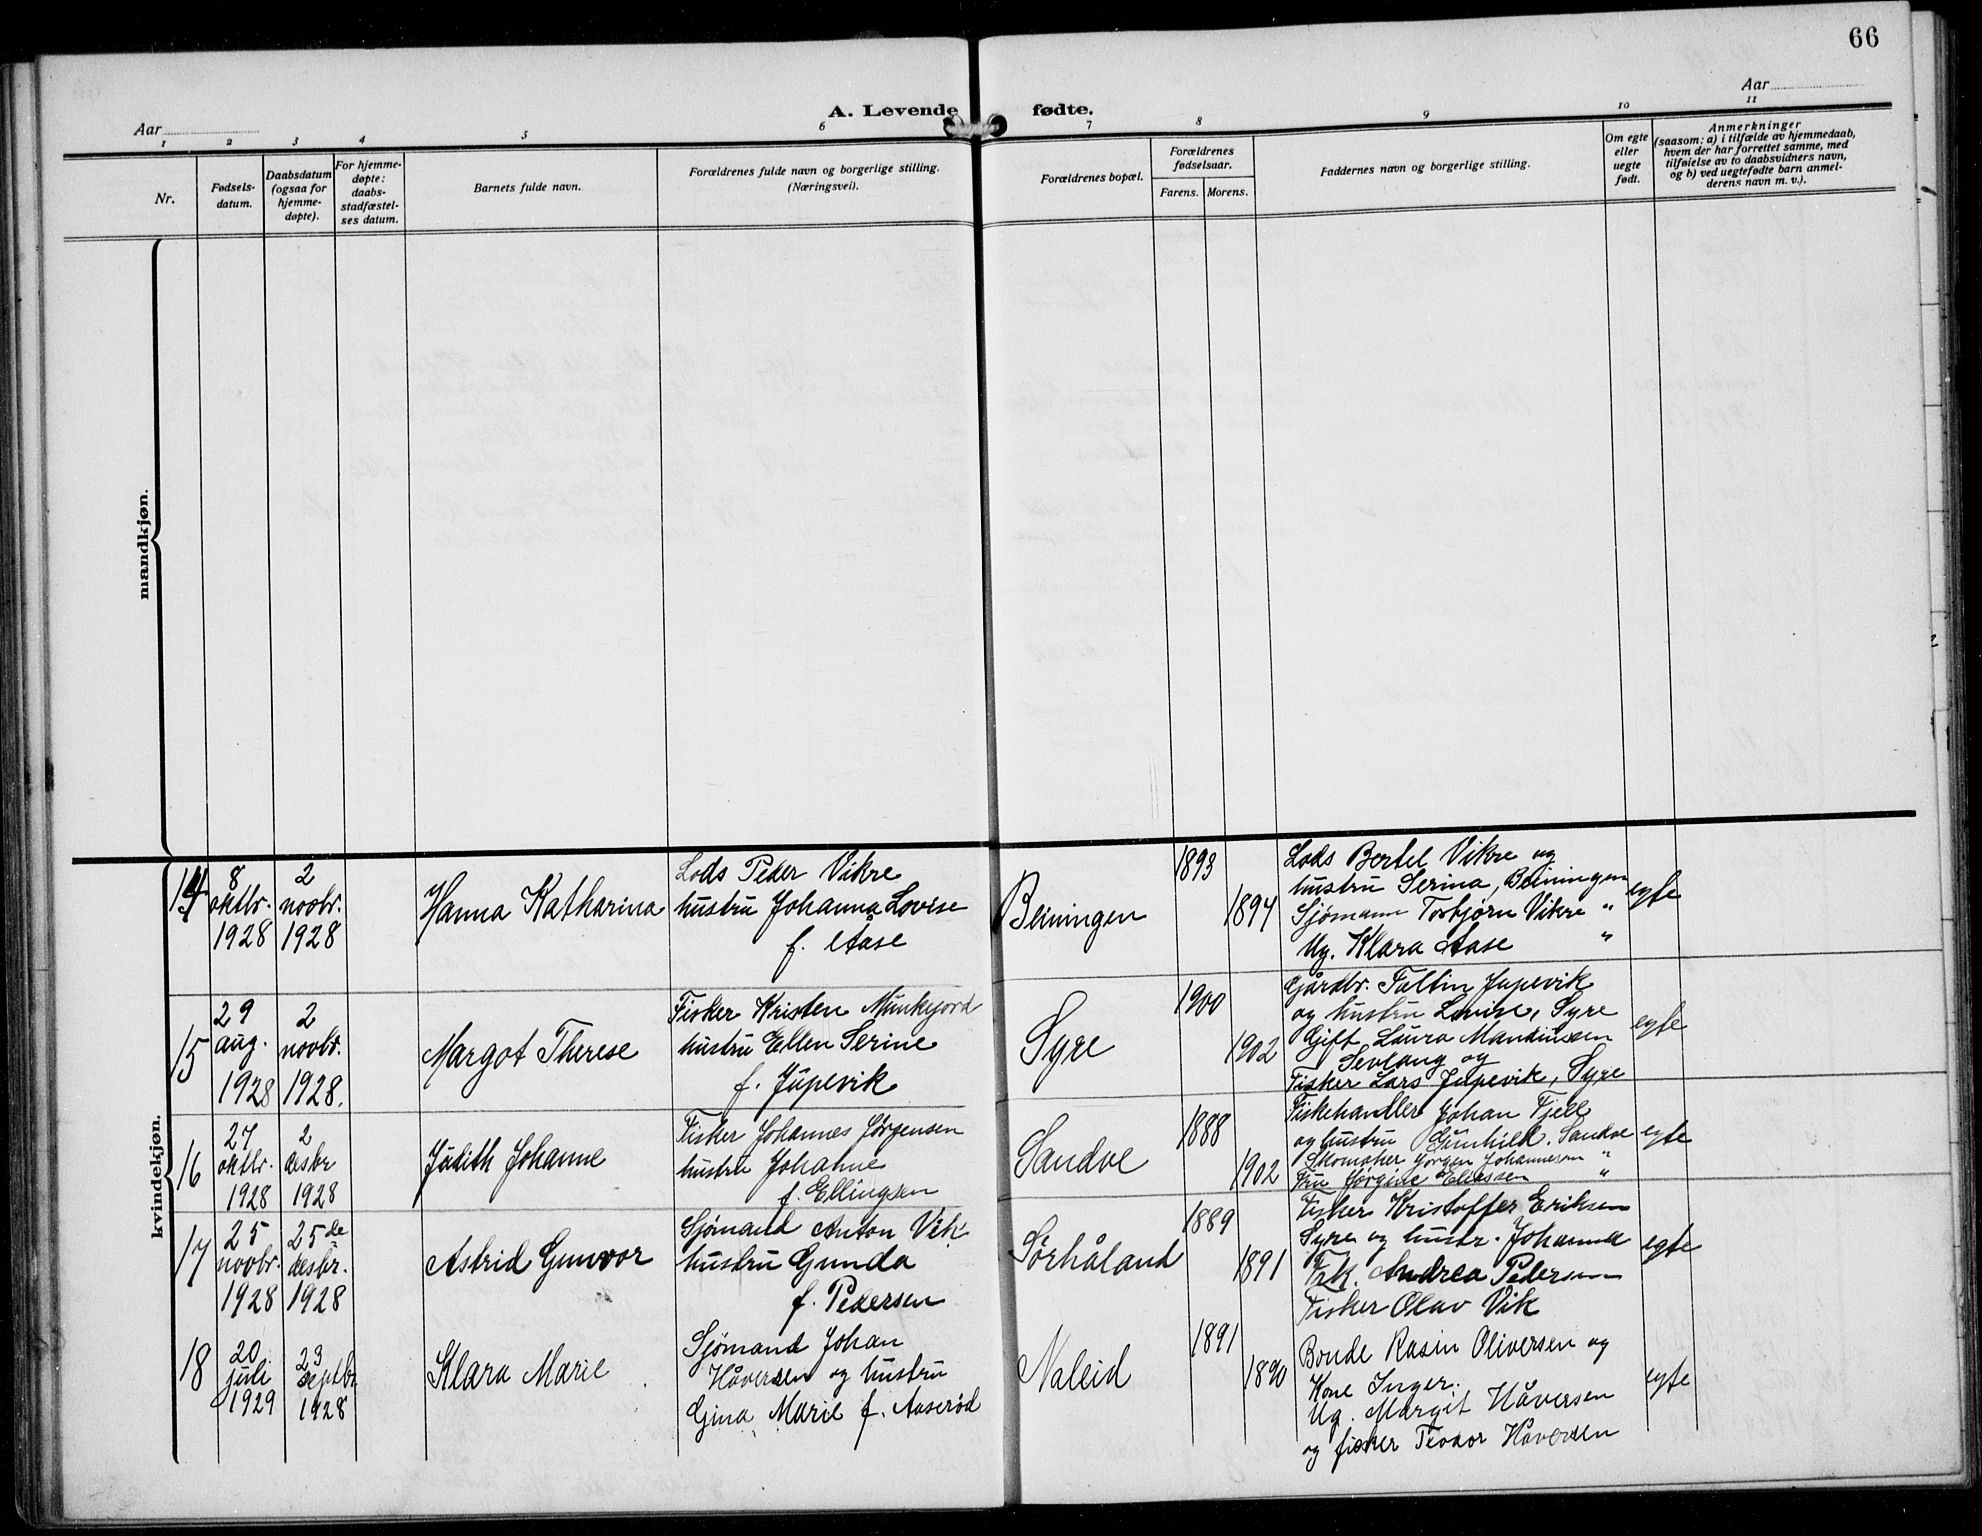 66
Aar
A. Levende fødte.
Aar
1 2 3 4 5 6 7 8 9 10 11
Nr.
Fødsels-
datum.
Daabsdatum
(ogsaa for
hjemme-
døpte).
For hjemme-
døpte:
daabs-
stadfæstel-
ses datum.
Barnets fulde navn.
Forældrenes fulde navn og borgerlige stilling.
(Næringsvei).
Forældrenes bopæl.
Forældrenes
fødselsaar.
Farens. Morens.
Faddernes navn og borgerlige stilling.
Om egte
eller
uegte
født.
Anmerkninger
(saasom: a) i tilfælde av hjemmedaab,
hvem der har forrettet samme, med
tilføielse av to daabsvidners navn,
og b) ved uegtefødte barn anmel-
derens navn m. v.).
mandkjøn.
kvindekjøn.
14
8
oktbr.
1928
2
novbr.
1928
Hanna Katharina
Lods Peder Vikre
hustru Johanna Lovise
f. Aase
Beiningen
1893
1894
Lods Bertel Vikre og
hustru Serina, Beiningen
Sjømann Torbjørn Vikre "
Ug. Klara Aase "
egte
15
29
aug.
1928
2
novbr.
1928.
Margot Therese
Fisker Kristen Munkejord
hustru Ellen Serine
f. Jupevik
Syre
1900
1902
Gårdbr. Faltin Jupevik
og hustru Lovise, Syre
Gift Laura Mandiussen
Sevlang og
Fisker Lars Jupevik, Syre
egte
16
27
oktbr.
1928
2
desbr
1928
Judith Johanne
Fisker Johannes Jørgensen
hustru Johanne
f. Ellingsen
Sandve
1888
1902
Fiskehandler Johan Fjell
og hustru Gunhild. Sandve
Skomaker Jørgen Johannesen "
Fru Jørgine Eliassen "
egte
17
25
novbr.
1928
25de
desbr.
1928
Astrid Gunvor
Sjømand Anton Vik
hustru Gunda
f. Pedersen
Sørhåland
1889
1891
Fisker Kristoffer Eriksen
Syre og hustr. Johanna
Frk. Andrea Pedersen
Fisker Olav Vik
egte
18
20
juli
1929
23
septbr
1928
Klara Marie
Sjømand Johan
Håversen og hustru
Gina Marie f. Aaserød
Naleid
1891
1890
Bonde Rasin Oliversen og
Kone Inger.
Ug. Margit Håversen
og fisker Teodor Håversen
egte